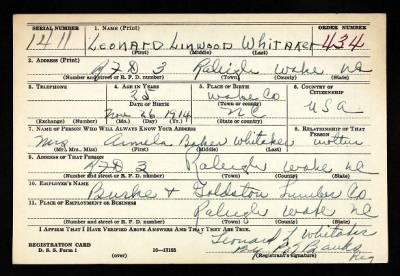 SERIAL NUMBER 1. NAME (Print) ORDER NUMBER
1411 LEONARD LINWOOD WHITAKER 434
(First) (Middle) (Last)
2. ADDRESS (Print)
RFD 3 Raleigh Wake NC
(Number and street or R. F. D. number) (Town) (County) (State)
3. TELEPHONE 4. AGE IN YEARS 5. PLACE OF BIRTH 6. COUNTRY OF CITIZENSHIP
25 Wake Co
DATE OF BIRTH (Town or county)
Nov 26 1914 NC USA
(Exchange) (Number) (Mo.) (Day) (Yr.) (State or country)
7. NAME OF PERSON WHO WILL ALWAYS KNOW YOUR ADDRESS 8. RELATIONSHIP OF THAT PERSON
Mrs Baker Whitaker
(Mr., Mrs., Miss) (First) (Middle) (Last)
9. ADDRESS OF THAT PERSON
RFD 3 Raleigh Wake NC
(Number and street or R. F. D. number) (Town) (County) (State)
10. EMPLOYER'S NAME
Burke + Goldston Lumber Co
11. PLACE OF EMPLOYMENT OR BUSINESS
Raleigh Wake NC
(Number and street or R. F. D. number) (Town) (County) (State)
I AFFIRM THAT I HAVE VERIFIED ABOVE ANSWERS AND THAT THEY ARE TRUE.
Leonard L Whitaker
REGISTRATION CARD By Banks
D. S. S. Form 1 (over) 16—17105 (Registrant's signature) Reg